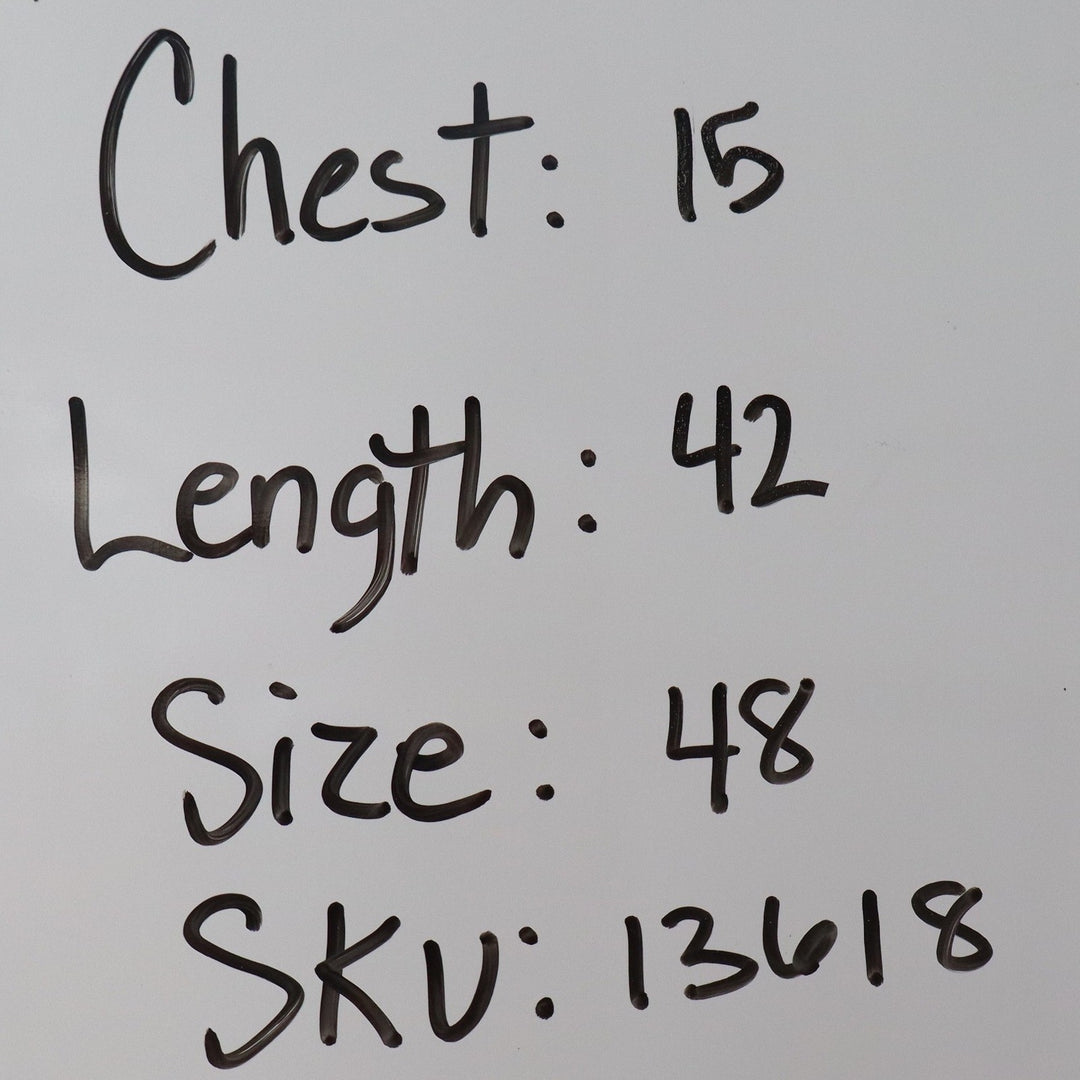 Chest: 15
Length: 42
Size: 48
SKU: 13618